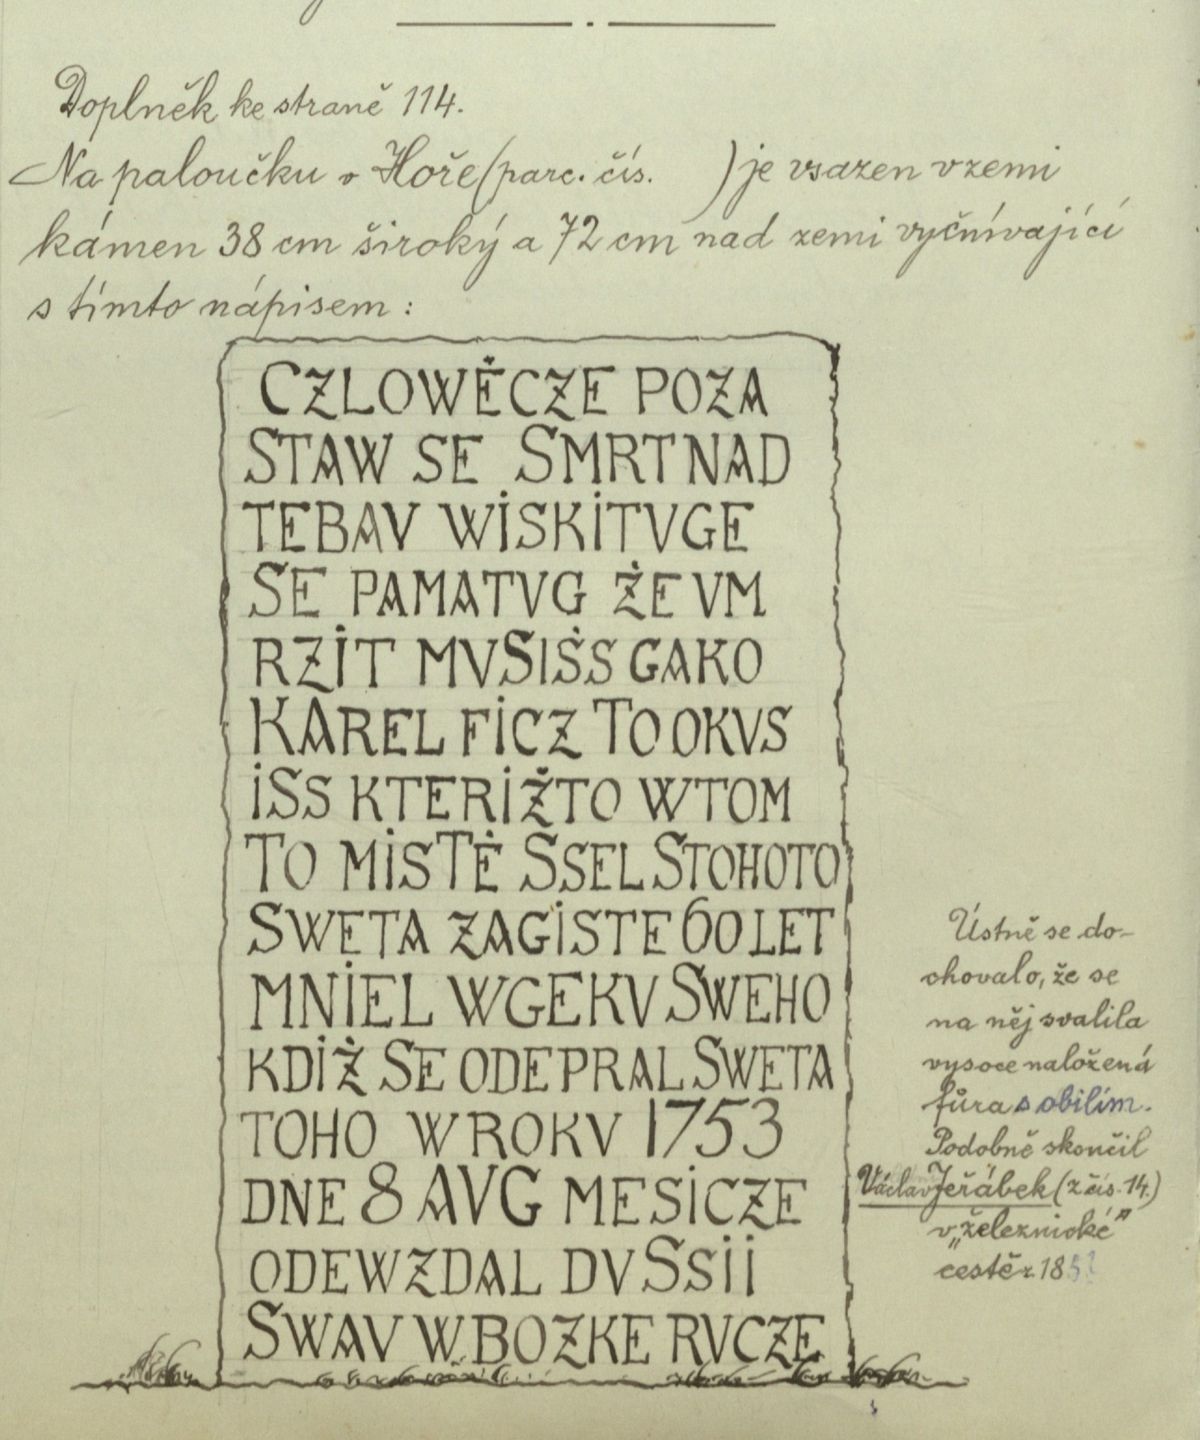 Doplněk ke straně 114.
Na paloučku v Hoře (parc. čís. ) je vsazen v zemi
kámen 38 cm široký a 72 cm nad zemi vyčnívající
s tímto nápisem:
CZLOWĖCZE POZA
STAW SE SMRT NAD
TEBAV WİSKİTVGE
SE PAMATVG ŻE VM
RZİT MVSIṠS GAKO
KAREL FİCZ TO OKVS
İSS KTERİŽTO WTOM
TO MİSTĖ SSEL STOHOTO
SWETA ZAGİSTE 60 LET
MNİEL WGEKV SWEHO
KDİŻ SE ODEPRAL SWETA
TOHO W ROKV 1753
DNE 8 AVG MESİCZE
ODEWZDAL DVSSİİ
SWAV W BOZKE RVCZE
Ústně se do-
chovalo, že se
na něj svalila
vysoce naložená
fůra s obilím.
Podobně skončil
Václav Jeřábek (z čís. 14.)
v „železnické"
cestě r. 18